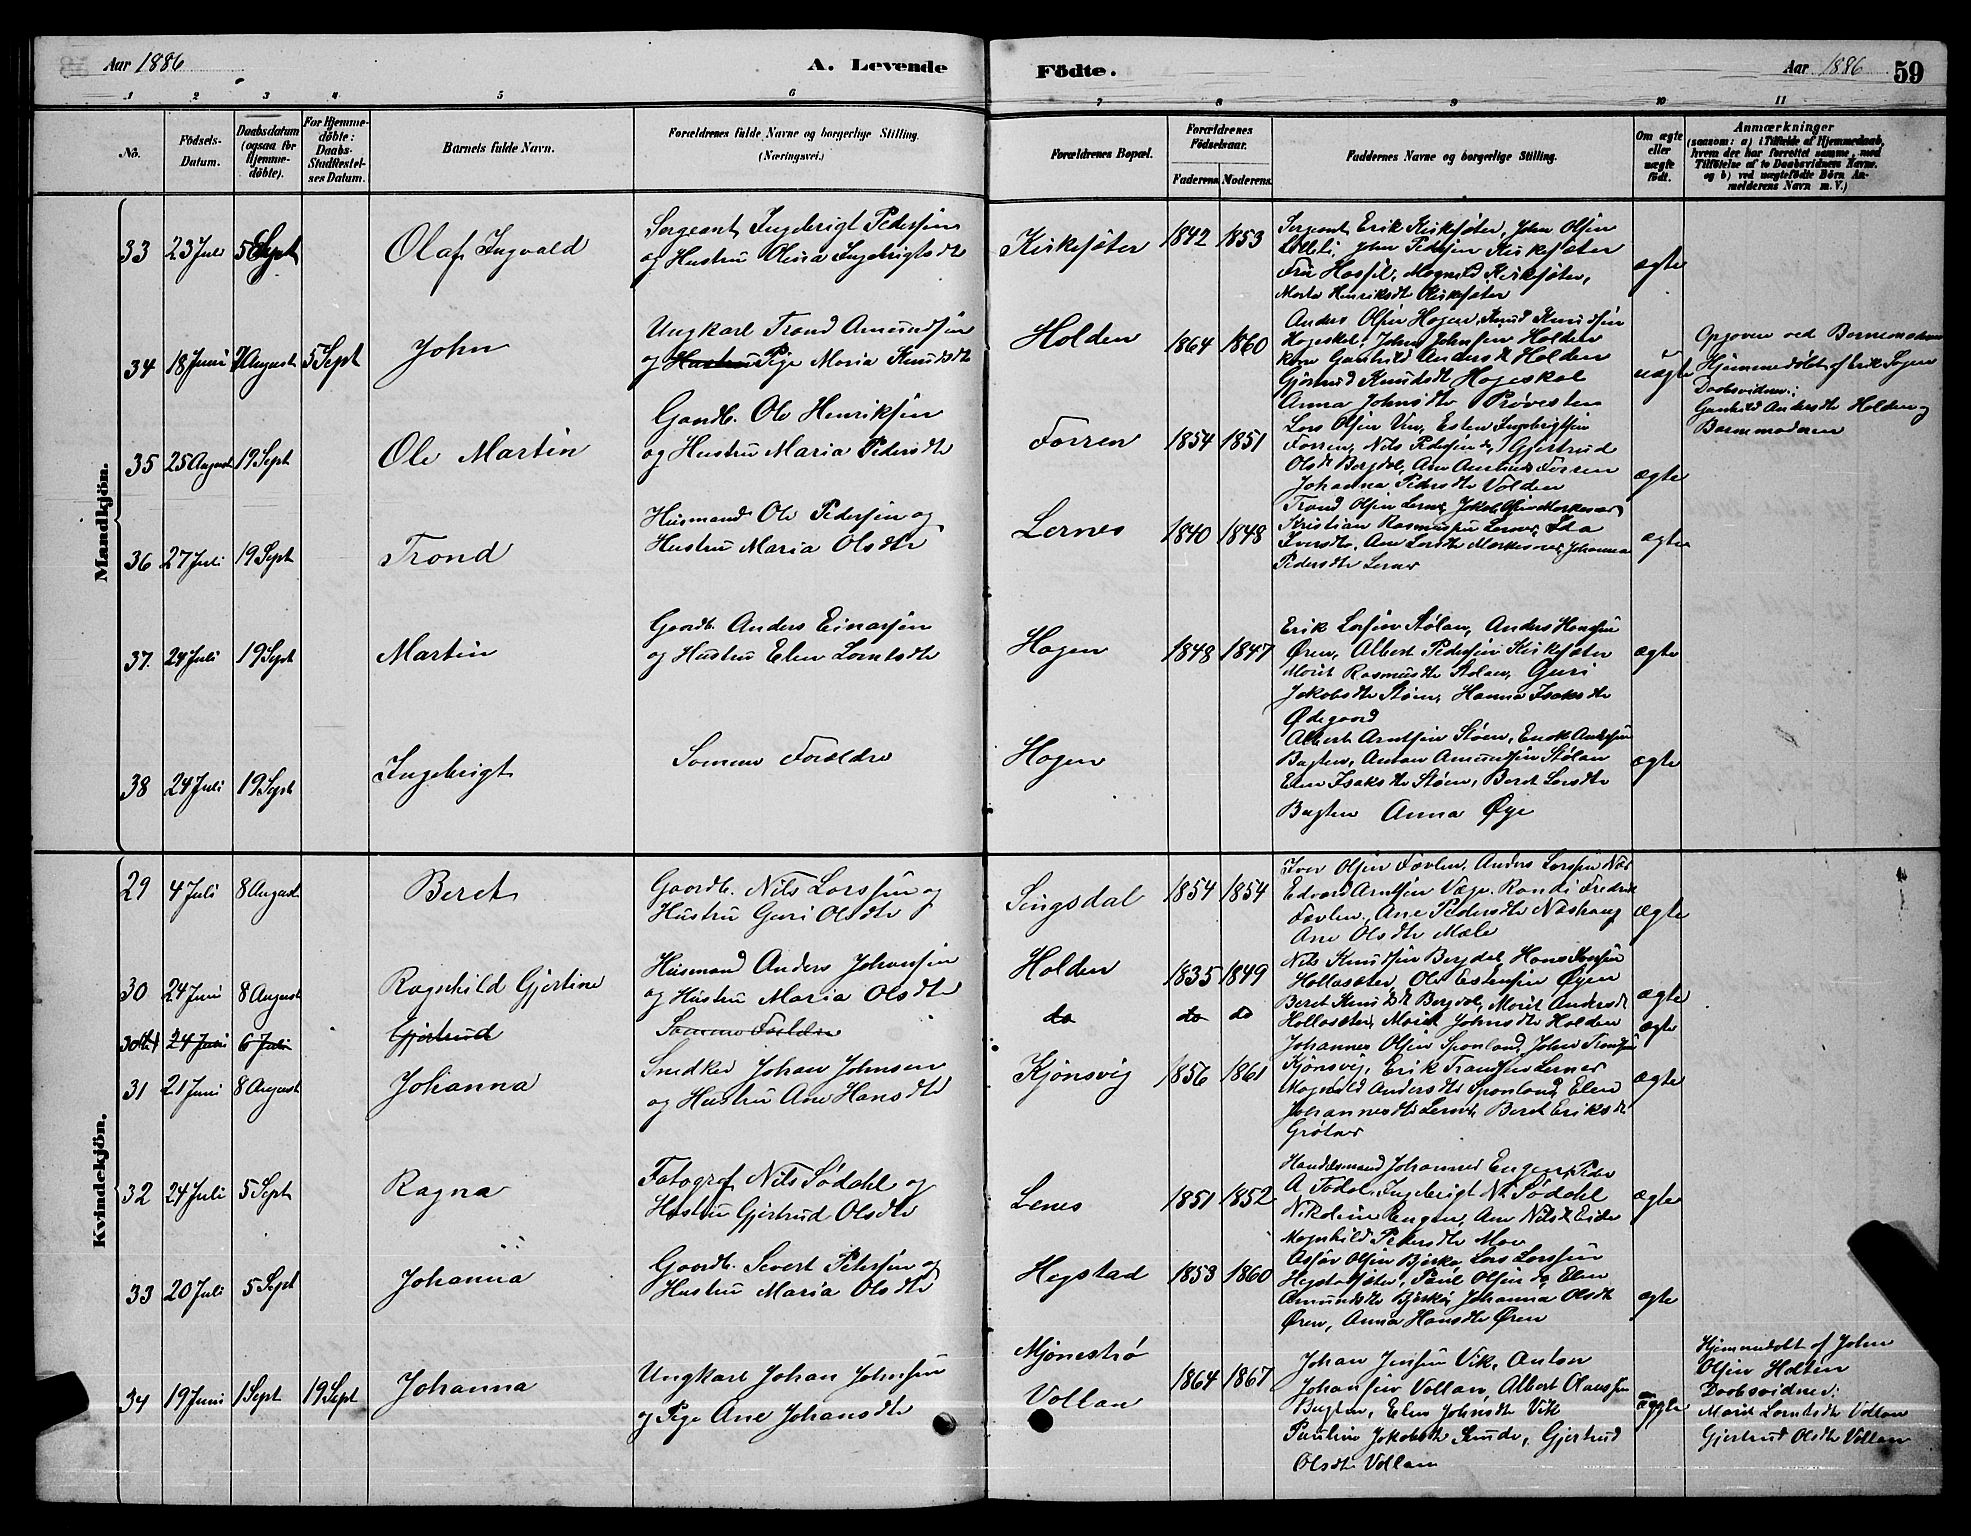 Aar 1886
A. Levende
Födte.
Aar 1886
59
1 2 3 4 5 6 7 8 9 10 11
No.
Födsels-
Datum.
Daabsdatum
(ogsaa for
Hjemme-
döbte).
For Hjemme-
döbte:
Daabs-
Stadfæstel-
ses Datum.
Barnets fulde Navn.
Forældrenes fulde Navne og borgerlige Stilling.
(Næringsvei.)
Forældrenes Bopæl.
Forældrenes
Födselsaar.
Faderens. Moderens.
Faddernes Navne og borgerlige Stilling.
Om ægte
eller
uægte
födt.
Anmærkninger
(saasom: a) i Tilfælde af Hjemmedaab,
hvem der har forrettet samme, med
Tilföielse af to Daabsvidners Navne,
og b) ved uægtefödte Börn An-
melderens Navn m. V.)
Mandkjön.
33 23 Juli 5 Sept Olaf Ingvald
Sergeant Ingebrigt Pedersen
og Hustru Olina Ingebrigtsdt
Kirkesæter 1842 1853
Sergeant Erik Kirkesæter, John Olsen
Lilleli, John Pedersen Kirkesæter
Magnild Kirkesæter,
Marta Henriksdt Kirkesæter
ægte
34 18 Juni August 5 Sept John
Ungkarl Trond Amundsen
og Hustru Pige Maria Knudsdt
Holden 1864 1860
Anders Olsen Hagen, Knud Knudsen
Hogeskal, John Johnsen Holden
Gunhild Andersdt Holden
Gjertrud Knudsdt Hogeskal
Anna Johnsdtr Prövesten
uægte
Opgiven ved Barnemoderen
Hjemmedöbt af Erik
Daabsvidner:
Gunhild Andersdtr Holden og
Barnemoderen
35 25 August 19 Sept Ole Martin
Gaardb. Ole Henriksen
og Hustru Maria Pedersdt
Forren 1854 1851
Lars Olsen Vin, Esten Ingebrigtsen
Forren, Nils Pedersen do, Gjertrud
Olsdt Bergdal, Ane Forren
Johanna Pedersdtr Volden
ægte
36 27 Juli 19 Sept Trond
Husmand Ole Pedersen og
Hustru Maria Olsdtr
Lernes 1840 1848
Trond Olsen Lernes, Jakob Olsen
Kristian Rasmussen Lernes,
Iversdtr, Ane Johanna
Pedersdtr Lernes
ægte
37. 24 Juli 19 Sept Martin
Gaardb. Anders Einarsen
og Hustru Elen Larntsdtr
Hagen 1848 1847
Erik Larsen Stölan, Anders Hanssen
Ören, Albert Pedersen Kirkesæter
Marit Rasmusdtr Stölan, Guri
Jakobsdtr Stöen, Hanna Isaksdtr
Ödegaard
ægte
38 24 Juli 19 Sept Ingebrigt
Samme Forældre
Hagen
Albert Arntsen Stöen, Enok Andersen
Bagten, Amund Amundsen Stölan
Elen Isaksdtr Stöen, Beret Larsdtr
Bugten Anna Øye
ægte
Kvindekjön.
29 4 Juli 8 August Beret
Gaardb. Nils Larssen og
Hustru Guri Olsdtr
Singsdal 1854 1854
Iver Olsen Fovlen, Anders Larssen
Edvard Arntsen Vaage, Randi
Fovlen, Ane Pedersdtr
Ane Olsdtr Mæle
ægte
30 24 Juni 8 August Ragnhild Gjertine
Husmand Anders Johansen
og Hustru Maria Olsdtr
Holden 1835 1849
Nils Knudsen Bergdal, Hans
Hollasæter, Ole Estensen Øyen
Beret Knudsdt Bergdal, Marit Andersdt
Hollasæter, Marit Johnsdtr Holden
ægte
24 Juni 6 Juli Gjertrud
Samme Forældre
do do do
ægte
31 21 Juni 8 August Johanna
Snedker Johan Johnsen
og Hustru Ane Hansdtr
Kjönsvig 1856 1861
Johannes Olsen Sponland, John
Kjönsvig, Erik Lernes
Magnild Andersdtr Sponland, Elen
Johannesdtr Lernes, Beret Eriksdt
Grötnes
ægte
32 24 Juli 5 Sept Ragna
Fotograf Nils Södahl og
Hustru Gjertrud Olsdtr
Lenes 1851 1852
Handelsmand Johannes Engen, Peder
A. Todal, Ingebrigt N. Södahl
Nikoline Engen, Ane Nilsdt Eide
Magnhild Pedersdtr Moe
ægte
33 20 Juli 5 Sept Johanna
Gaardb. Sivert Petersen og
Hustru Maria Olsdtr
Hegstad 1853 1860
Olsen Björkö, Lars Larssen
Hegstadsæter, Paul Olsen do, Elen
Amundsdtr Björkö, Johanna Olsdtr
Ören, Anna Hansdtr Ören
ægte
34 19 Juni 1 Sept 19 Sept Johanna
Ungkarl Johan Johnsen
og Pige Ane Johansdtr
Mjöneströ
Vollan
1864 1867
Johan Jensen Vik, Anton
Johansen Vollan, Albert Olaussen
Bugten, Elen Johnsdtr Vik
Pauline Jakobsdtr Gjertrud
Olsdtr Vollan
Hjemmedöbt af John
Olsen Holten
Daabsvidner:
Marit Larntsdtr Vollan
Gjertrud Olsdtr Vollan